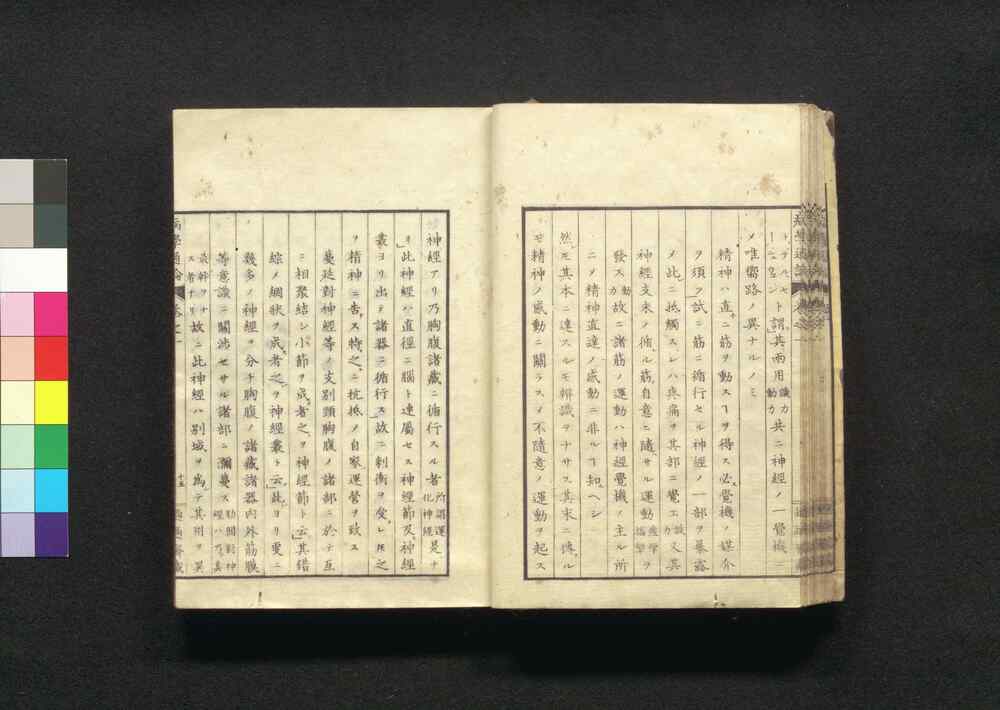 トデルモト謂其兩用識力動力共ニ神經ノ一覺機
ーニ名シメ唯嚮路ノ異ナルノミ
精神ハ直ニ筋ヲ動スヿヲ得ス必覺機ノ媒介
ヲ須フ試ニ筋ニ循行セル神經ノ一部ヲ暴露
メ此ニ抵觸スレハ疼痛ヲ其部ニ覺エ又其
神經支末ノ循ル筋自意ニ隨サル運動ヲ
發ス動力故ニ諸筋ノ運動ハ神經覺機ノ主ル所
ニメ精神直達ノ感動ニ非ルヿ知ヘシ
然モ其本ニ達スルモ辨識ヲナサス其末ニ傳ル
モ精神ノ感動ニ關ラスメ不隨意ノ運動ヲ起ス
神經アリ乃胸腹諸臓ニ循行スル者是ナ所謂運化神經
リ此神經ハ直徑ニ腦ト連屬セス神經節及神經
叢ヨリ出テ諸器ニ循行ス故ニ刺衝ヲ受レ𪜈之
ヲ精神ニ告ス特之ニ抗抵メ自家運營ヲ致ス
蔓延對神經等ノ支別頭胸腹ノ諸部ニ於テ互
ニ相聚結シ小節ヲ成者之ヲ神經節ト云其錯
綜メ網狀ヲ成者之ヲ神經叢ト云此ヨリ更ニ
幾多ノ神經ヲ分チ胸腹ノ諸臓諸器內外筋膜
等意識ニ關涉セサル諸部ニ瀰蔓ス肋間對神經ハ其
最幹ヲナス者ナリ故ニ此神經ハ別域ヲ爲テ其用ヲ異
病學通論
卷之一
十五